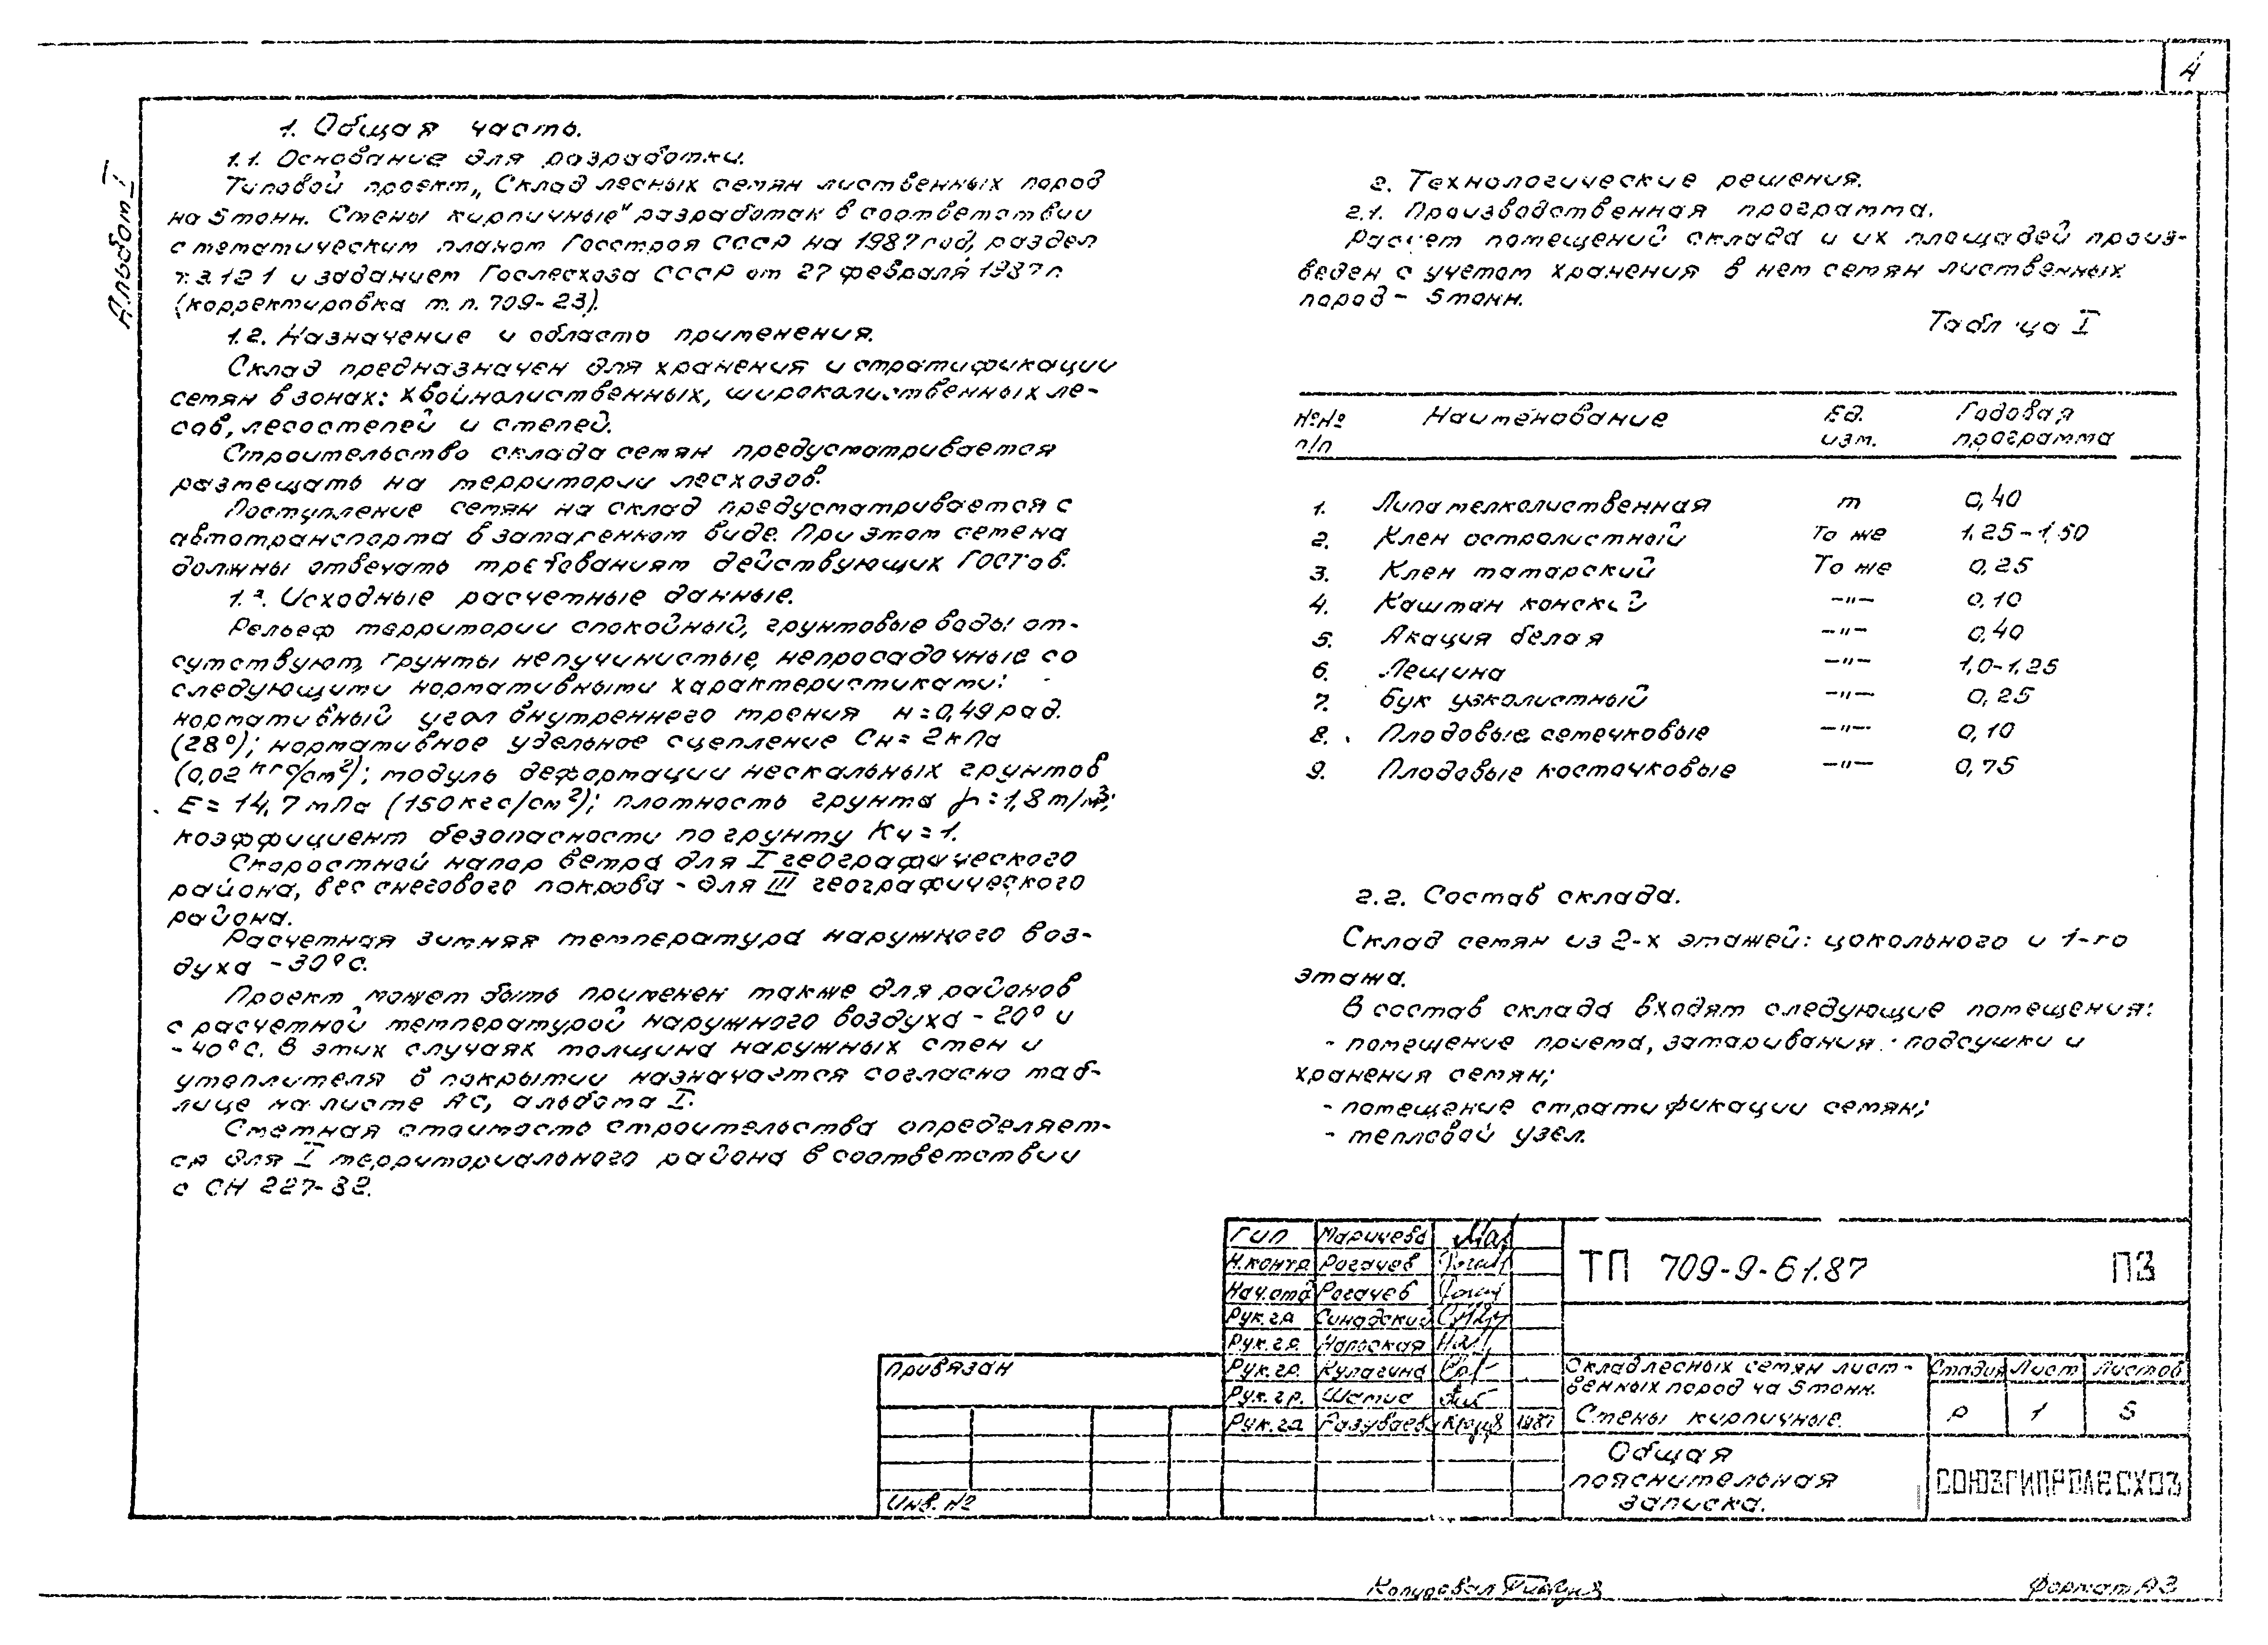 4
Альбом I
1. Общая часть.
1.1. Основание для разработки.
Типовой проект „Склад лесных семян лиственных пород
на 5 тонн. Стены кирпичные" разработан в соответствии
с тематическим планом Госстроя СССР на 1987 год, раздел
т.3.1 2 1 и заданием Гослесхоза СССР от 27 февраля 1987 г.
(корректировка т.п. 709-23).
1.2. Назначение и область применения.
Склад предназначен для хранения и стратификации
семян в зонах: хвойнолиственных, широколиственных ле-
сов, лесостепей и степей.
Строительство склада семян предусматривается
размещать на территории лесхозов.
Поступление семян на склад предусматривается с
автотранспорта в затаренном виде. При этом семена
должны отвечать требованиям действующих ГОСТов.
1.3. Исходные расчетные данные.
Рельеф территории спокойный, грунтовые воды от-
сутствуют, грунты непучинистые, непросадочные со
следующими нормативными характеристиками:
нормативный угол внутреннего трения н=0,49 рад.
(28°); нормативное удельное сцепление Сн=2кПа
(0,02 кгс/см²); модуль деформации нескальных грунтов
Е=14,7 мПа (150 кгс/см²); плотность грунта γ=1,8 т/м³;
коэффициент безопасности по грунту Кч=1.
Скоростной напор ветра для I географического
района, вес снегового покрова - для III географического
района.
Расчетная зимняя температура наружного воз-
духа -30°С.
Проект может быть применен также для районов
с расчетной температурой наружного воздуха -20° и
-40°С. В этих случаях толщина наружных стен и
утеплителя в покрытии назначается согласно таб-
лице на листе АС, альбома I.
Сметная стоимость строительства определяет-
ся для I территориального района в соответствии
с СН 227-82.
2. Технологические решения.
2.1. Производственная программа.
Расчет помещений склада и их площадей произ-
веден с учетом хранения в нем семян лиственных
пород - 5 тонн.
Таблица I
№№ п/п Наименование Ед. изм. Годовая программа
1. Липа мелколиственная т 0,40
2. Клен остролистный То же 1,25-1,50
3. Клен татарский То же 0,25
4. Каштан конский —"— 0,10
5. Акация белая —"— 0,40
6. Лещина —"— 1,0-1,25
7. Бук узколистный —"— 0,25
8. Плодовые семечковые —"— 0,10
9. Плодовые косточковые —"— 0,75
2.2. Состав склада.
Склад семян из 2-х этажей: цокольного и 1-го
этажа.
В состав склада входят следующие помещения:
- помещение приема, затаривания, подсушки и
хранения семян;
- помещение стратификации семян;
- тепловой узел.
ГИП Маричева
Н.контр. Рогачев
Нач.отд Рогачев
Рук.гр. Синадский
Рук.гр.
Рук.гр. Кулагина
Рук.гр.
Рук.гр. Разуваева 1987
ТП 709-9-61.87 ПЗ
Склад лесных семян лист-
венных пород на 5 тонн.
Стены кирпичные.
Стадия Лист Листов
Р 1 5
Общая
пояснительная
записка.
СОЮЗГИПРОЛЕСХОЗ
Привязан
Инв. №
Копировал
Формат А3